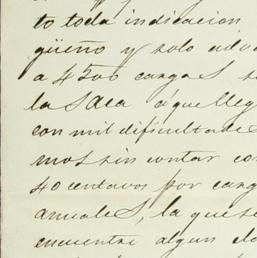 to toda indicacion
güeño y solo adv
a 4500 cargas s
la saca á que lleg
con mil dificultade
mos sin contar con
40 centavos por carg
anuales, la que se
encuentre algun